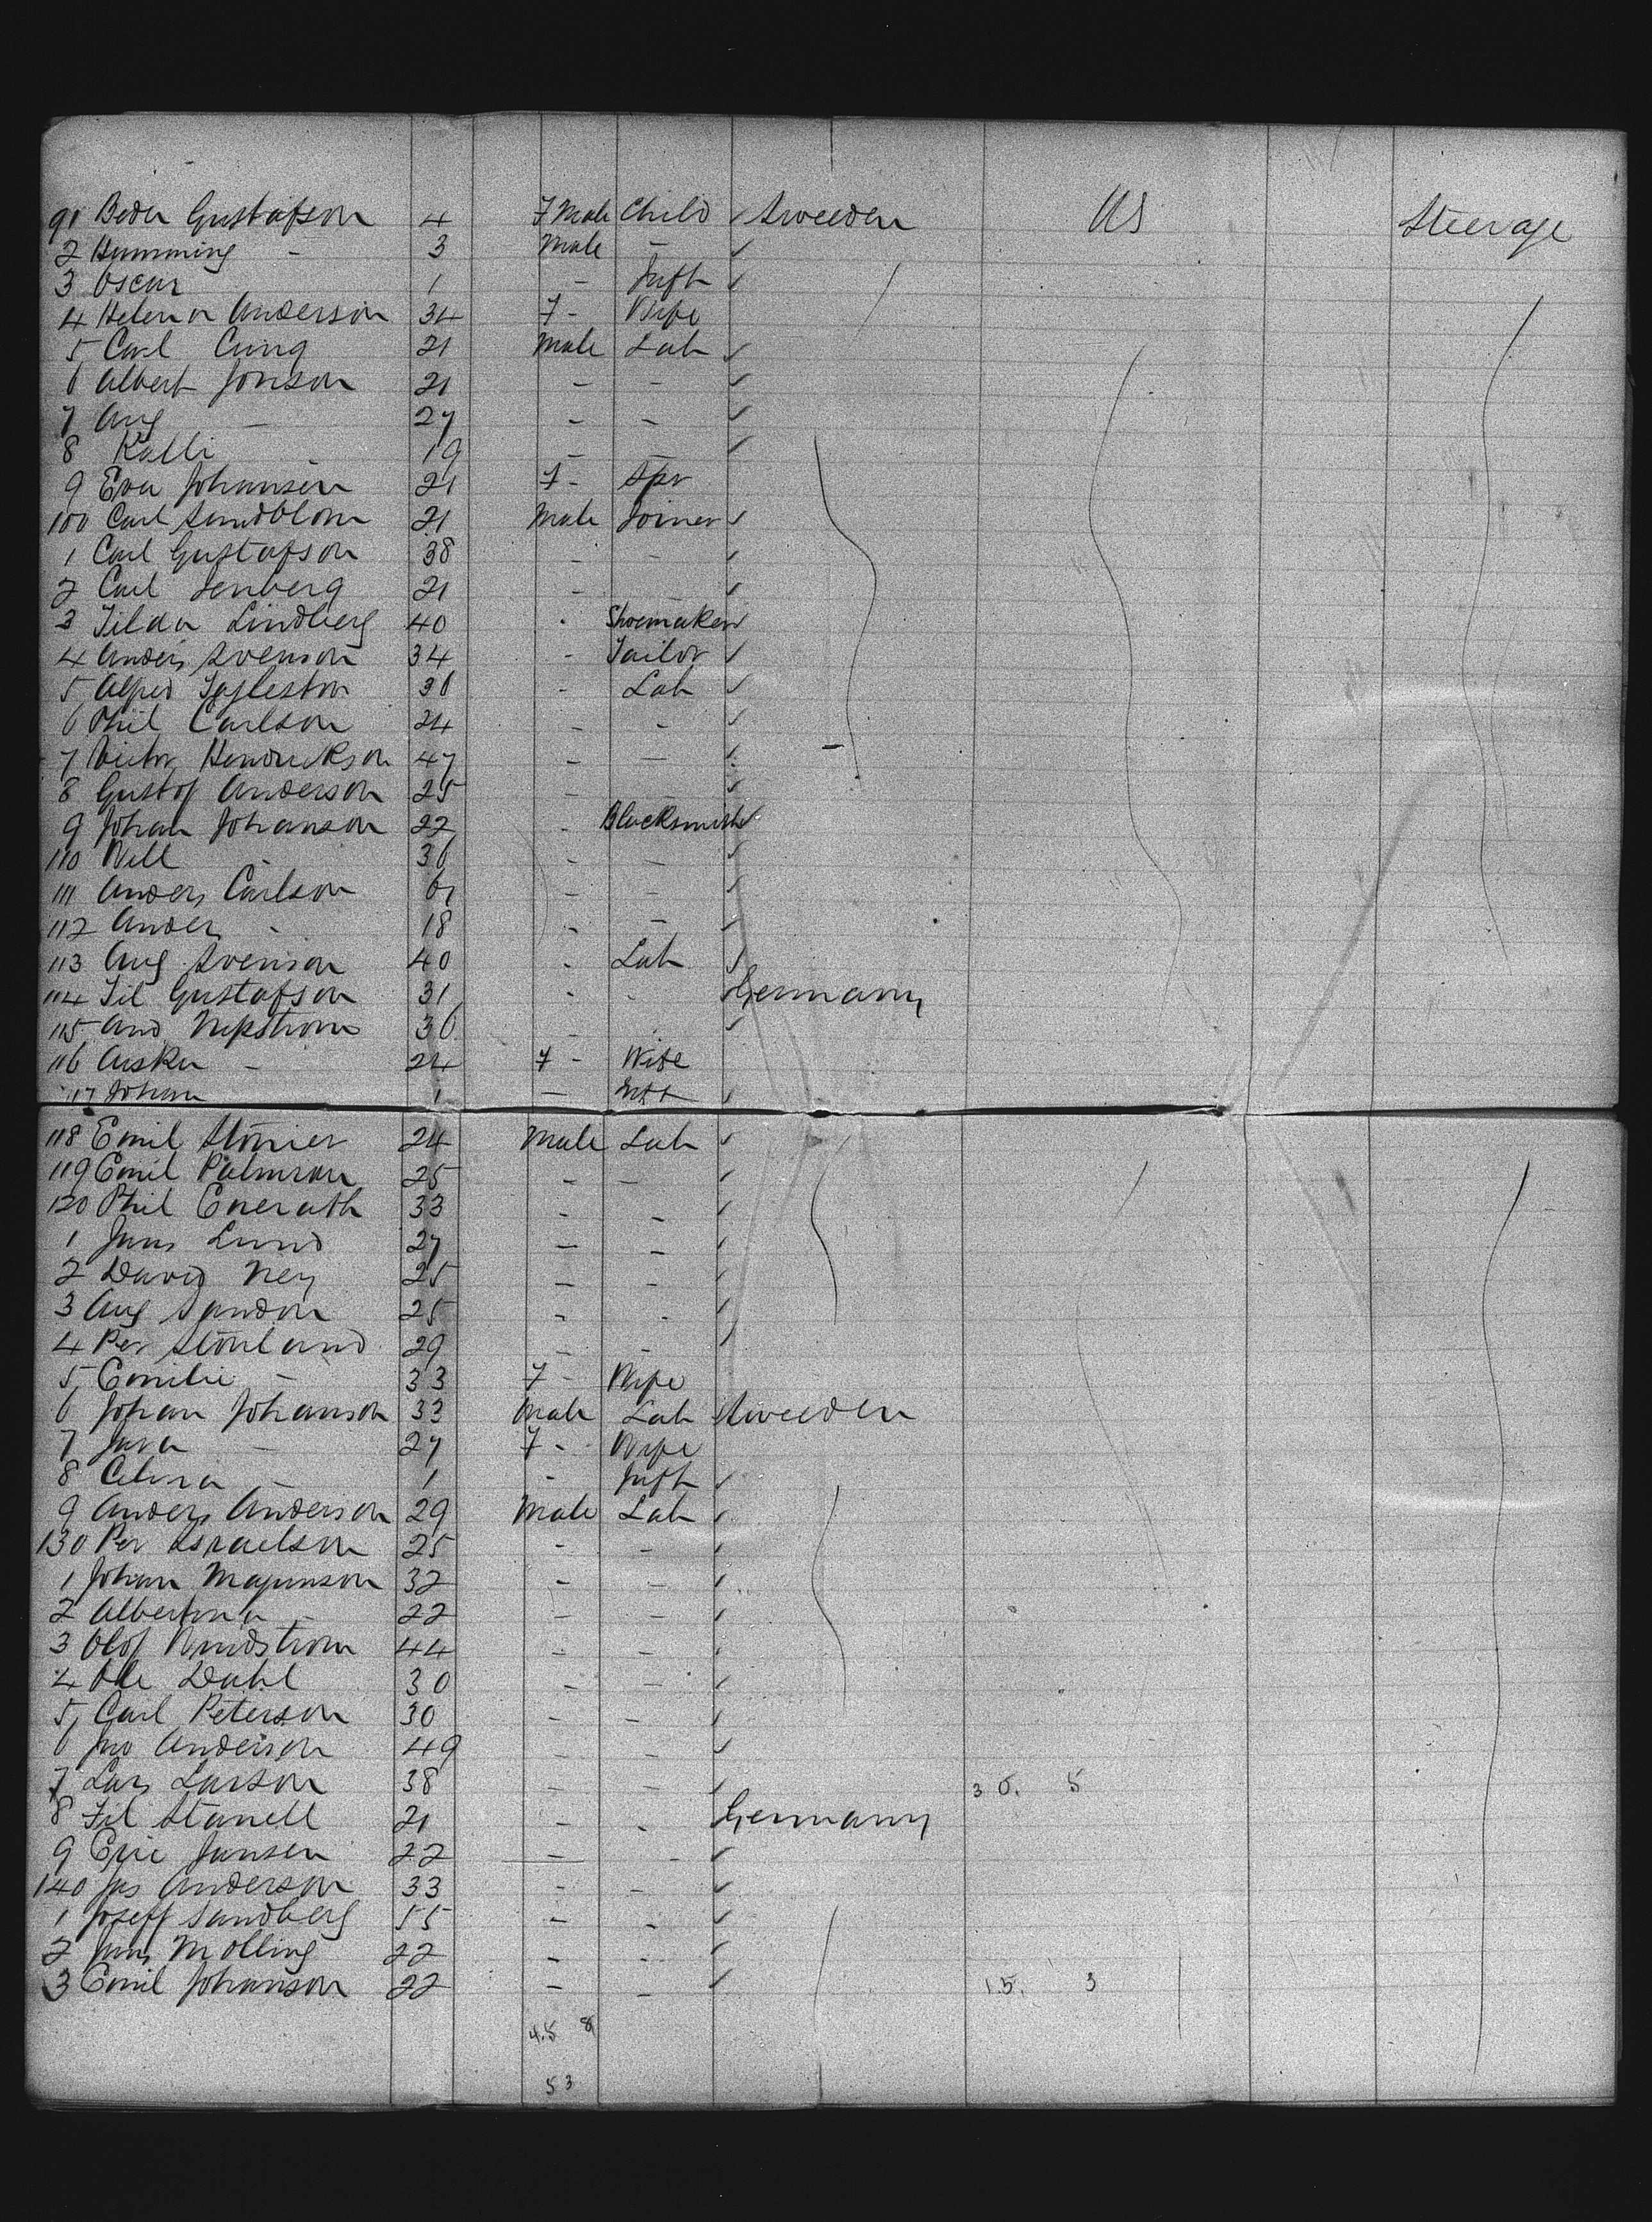 91 Beda Gustafson 4 F Male Child ✓ Sweeden US Steerage
2 Hemming - 3 Male - ✓
3 Oscar 1 - Inft ✓
4 Helena Anderson 34 F - Wife
5 Carl Cung 21 Male Lab ✓
6 Albert Jonson 21 - - ✓
7 Aug - 27 - - ✓
8 Kalli - 19 - - ✓
9 Eva Johansen 21 F - Spr
100 Carl Sundblom 21 Male Joiner ✓
1 Carl Gustafson 38 - - ✓
2 Carl Senberg 21 - - ✓
3 Tilda Lindberg 40 - Shoemaker ✓
4 Anders Svenson 34 - Tailor ✓
5 Alfred 36 - Lab ✓
6 Phil Carlson 24 - - ✓
7 Victor Hendrickson 47 - - ✓
8 Gustof Anderson 25 - - ✓
9 Johan Johanson 22 - Blacksmith ✓
110 Will - 36 - - ✓
111 Anders Carlson - - ✓
112 Anders - 18 - - ✓
113 Aug Svenson 40 - Lab ✓
114 Fil Gustafson 31 - - Germany
115 And 36 - - ✓
116 - 24 F - Wife
117 Johan 1 - Inft ✓
118 Emil 24 Male Lab ✓
119 Emil Palmson 25 - - ✓
120 Phil Enerath 33 - - ✓
1 Jans Lund 27 - - ✓
2 David Ney 25 - - ✓
3 Aug Sandon 25 - - ✓
4 Per 29 - - ✓
5 Emilie - 33 F - Wife
6 Johan Johanson 33 Male Lab Sweeden
7 - 27 F - Wife
8 - 1 - Inft ✓
9 Anders Anderson 29 Male Lab ✓
130 Per Israelson 25 - - ✓
1 Johan Magnuson 32 - - ✓
2 Albertina - 22 - - ✓
3 Olof 44 - - ✓
4 Ole Dahl 30 - - ✓
5 Carl Peterson 30 - - ✓
6 Jno Anderson 49 - - ✓
7 Lars Larson 38 - - ✓ 30. 5
8 Fil Stanell 21 - - Germany
9 Eric Jansen 22 - - ✓
140 Jas Anderson 33 - - ✓
1 Joseff Sandberg 55 - - ✓
2 Jans Molling 22 - - ✓
3 Emil Johanson 22 - - ✓ 15. 3
45 8
53